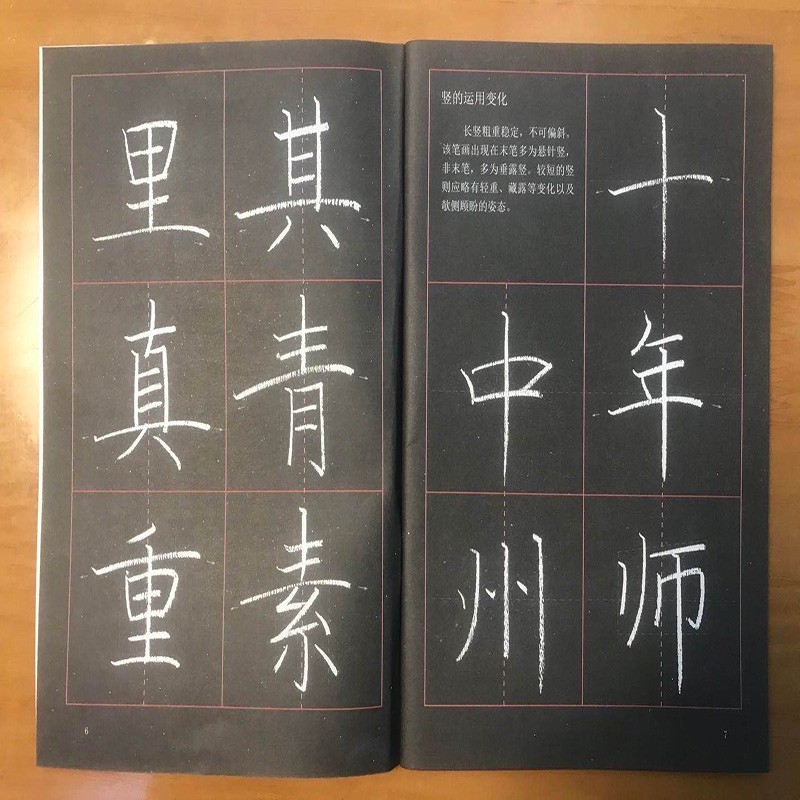 其青素
里真重
6
竖的运用变化
长竖粗重稳定，不可偏斜。
该笔画出现在末笔多为悬针竖，
非末笔，多为垂露竖。较短的竖
则应略有轻重、藏露等变化以及
欹侧顾盼的姿态。
十年师
中州
7